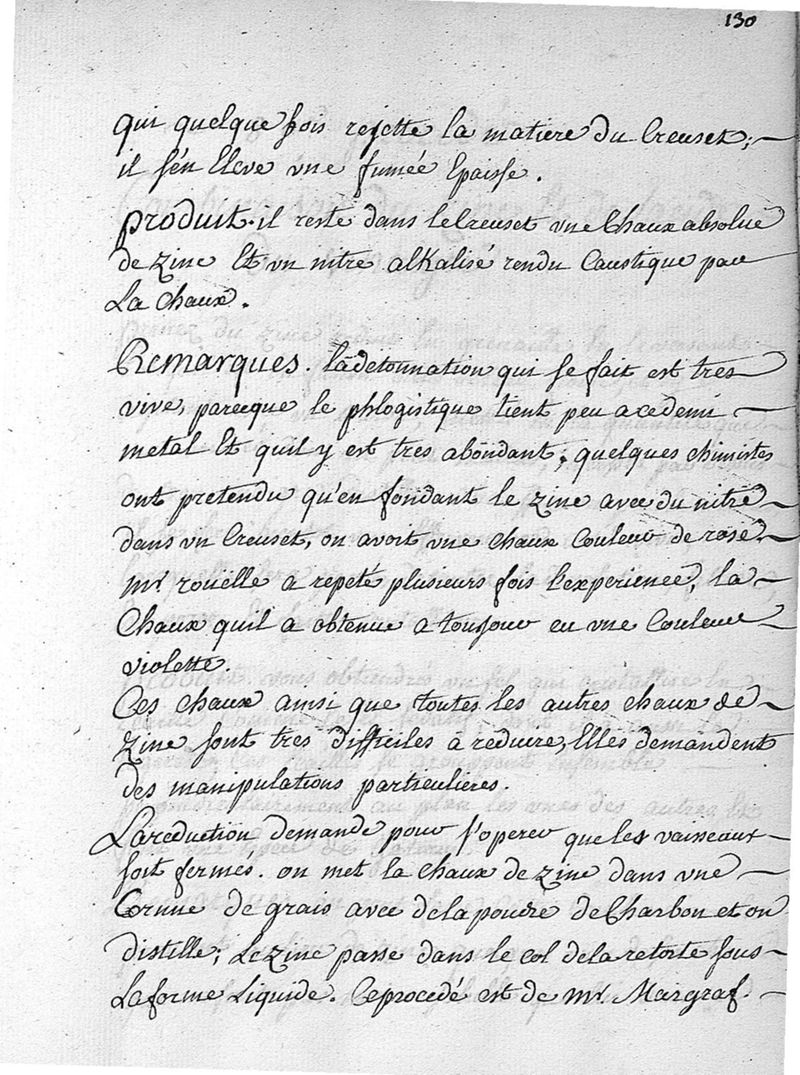 130
qui quelque fois rejette la matiere du Creuset;
il s'en Eleve vne fumée Epaisse.
produit. il reste dans le Creuset vne Chaux absolue
de zinc Et vn nitre alkalisé rendu Caustique par
La chaux.
Remarques. la detonnation qui se fait est tres
vive, parceque le phlogistique tient peu a ce demi
metal Et quil y est tres abondant; quelques chimistes
ont pretendu qu'en fondant le zinc avec du nitre
dans vn Creuset, on avoit vne chaux Couleur de rose.
mr. rouëlle a repeté plusieurs fois l'experience, la
Chaux quil a obtenue a toujour eu vne Couleur
violette.
Ces chaux ainsi que toutes les autres chaux de
zinc sont tres difficiles à reduire, Elles demandent
des manipulations particulieres.
La reduction demande pour s'operer que les vaisseaux
soit fermés. on met la chaux de zinc dans vne
Cornue de grais avec de la poudre de Charbon et on
distille; Le zinc passe dans le col de la retorte sous
La forme Liquide. Ce procedé est de mr. Margraf.